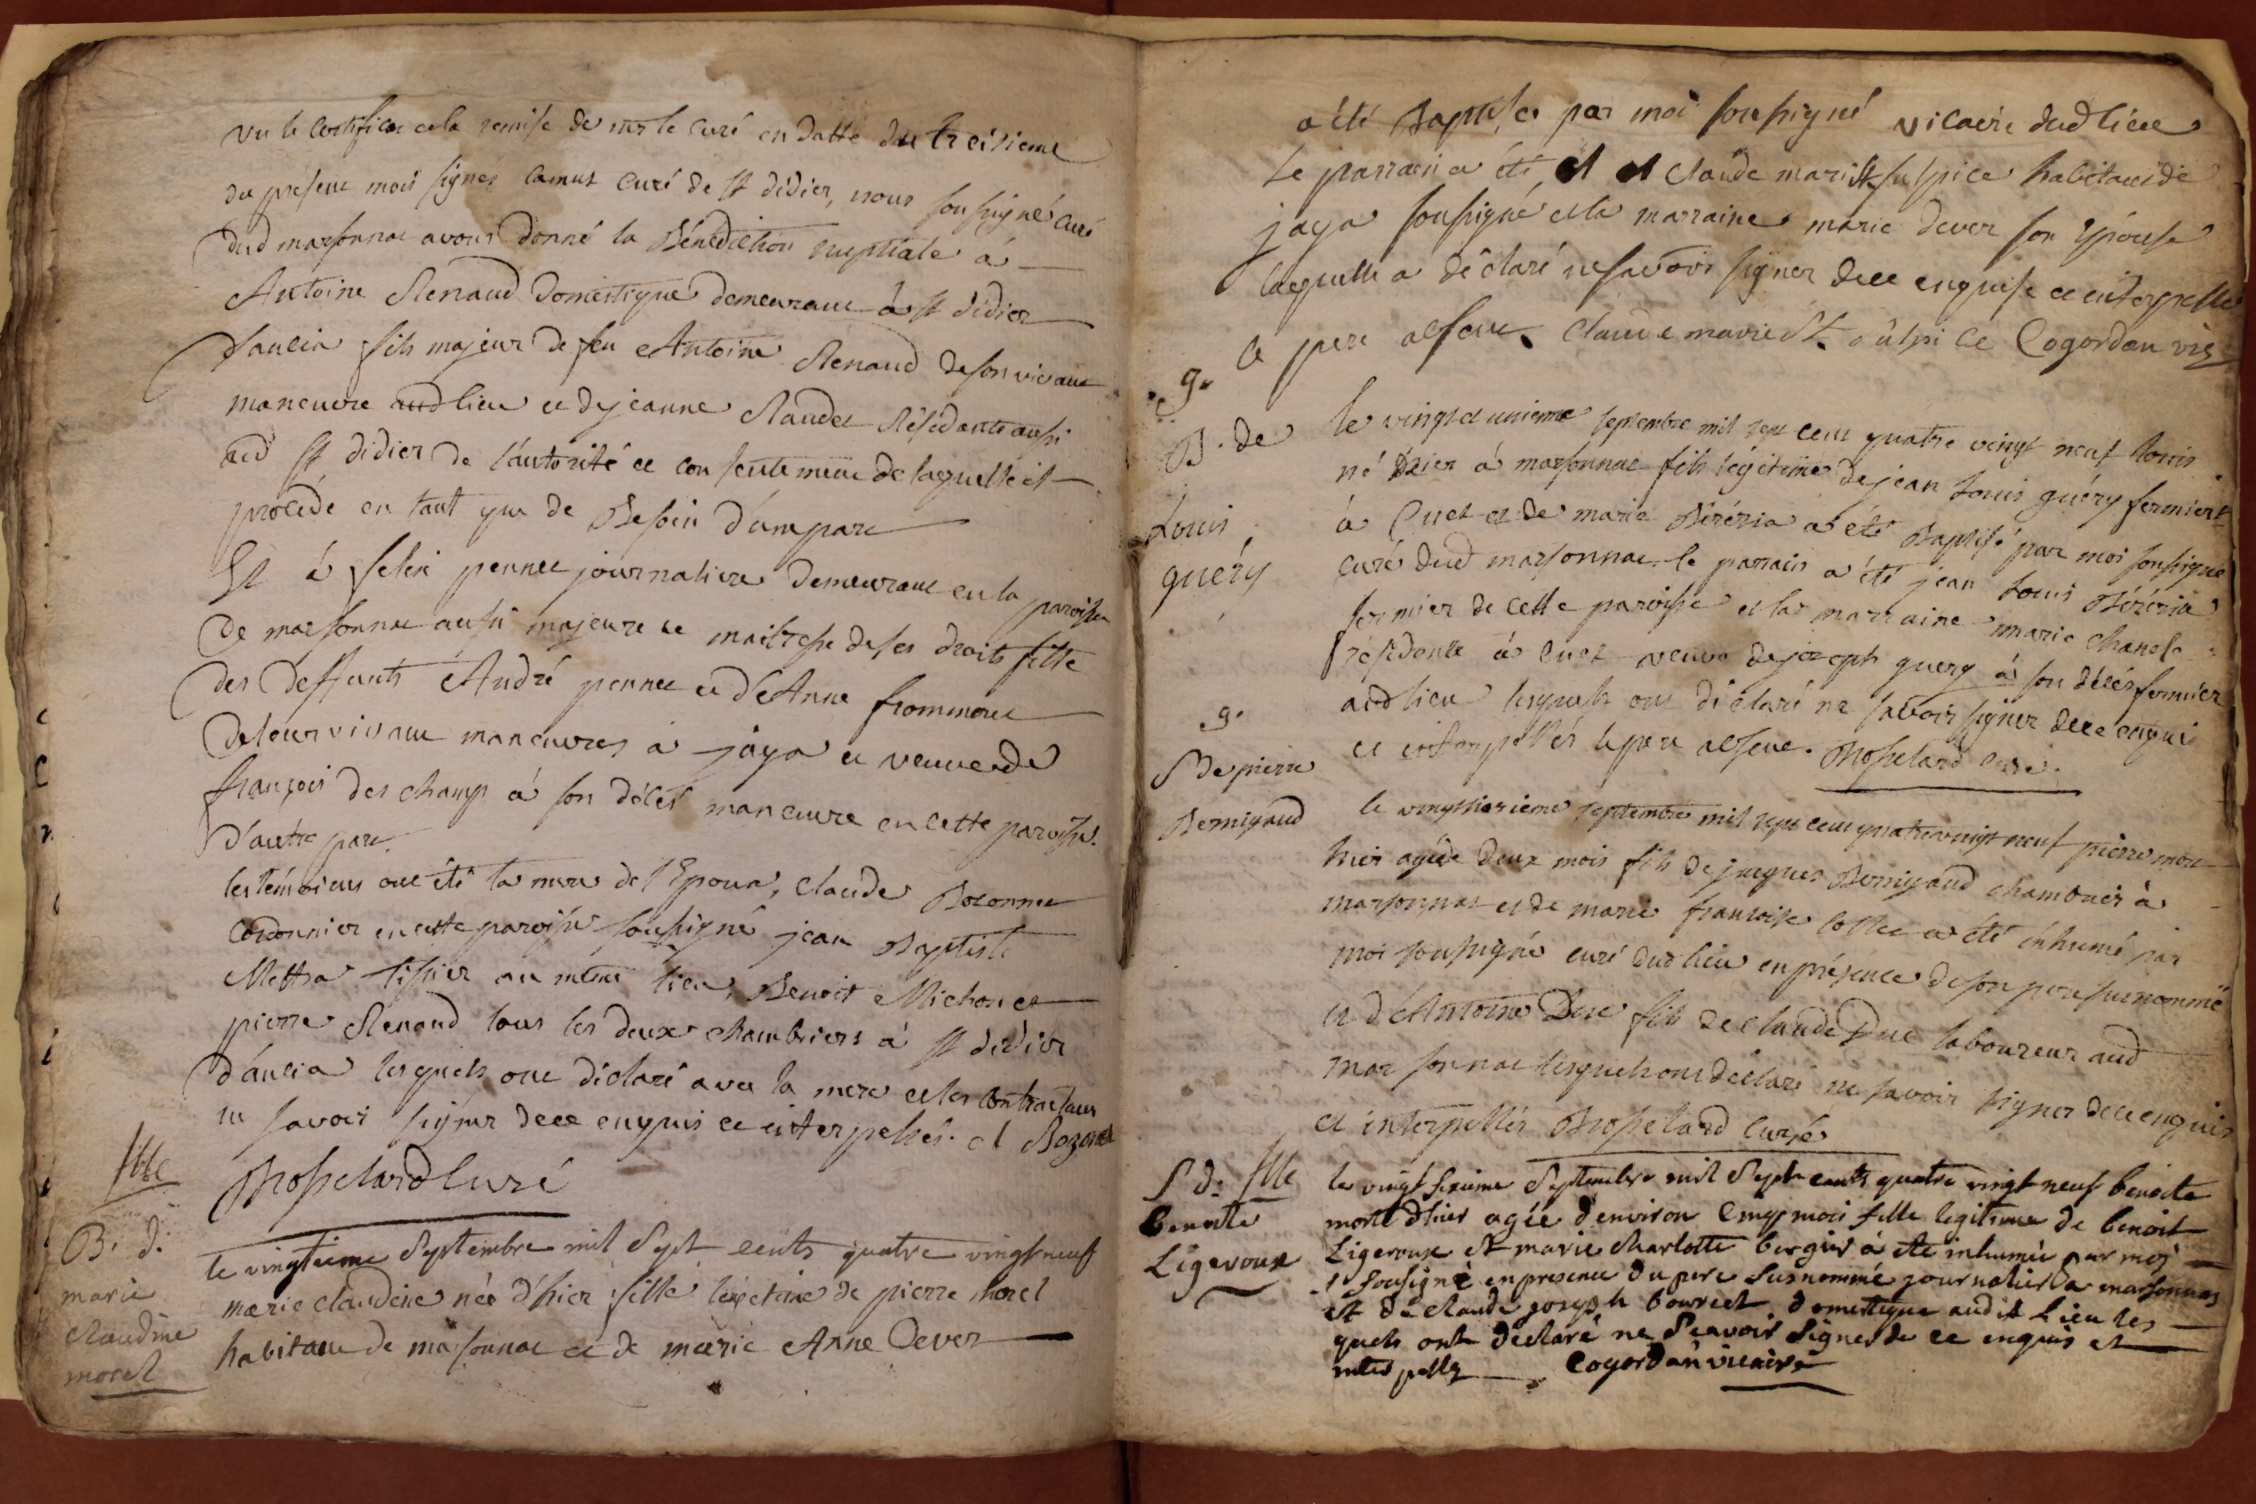 vu le certificat et la remise de mr le curé en datte du treisieme
du present mois signés camus curé de st didier, nous soussigné curé
dud marsonnac avons donné la Bénédiction nuptiale à
Antoine Renaud Domestique demeurant à st didier
d'aucia fils majeur de feu Antoine Renaud de son vivant
maneuvre aud lieu et de jeanne Raudet Résidante aussi
aud st didier de l'autorité et consentement de laquelle il
procède en tant que de Besoin d'une part
Et à pennet journaliere demeurant en la paroisse
de marsonnac aussi majeure et maitresse de ses droits fille
des deffunts André pennet et d'Anne frommont
de leur vivant maneuvres à jaya et veuve de
françois des champ à son décès maneuvre en cette paroisse
d'autre part.
les témoins ont été la mere de l'Epoux, claude Bozonnet
cordonnier en cette paroisse soussigné jean Baptiste
Mettra tissier au même lieu, Benoit Michon et
pierre Renaud tous les deux chambriers à st didier
d'aucia lesquels ont déclaré avec la mere et les contractans
ne savoir signer de ce enquis et interpellés. c Bozonet
Mosselard Curé
B. d.
marie
claudine
morel
le vingtieme Septembre mil Sept cents quatre vingt neuf
marie claudine née d'hier fille légitime de pierre morel
habitant de marsonnac et de marie Anne Dever
a été Baptisée par moi soussigné vicaire dud lieu
le parrain a été claude marie st sulpice habitant de
jaya soussigné et la marraine marie dever son Epouse
laquelle a déclaré ne savoir signer de ce enquise et interpellée
le pere absent. Claude marie St. sulpice Cogordan vic
g.
B. de
Louis
guéry
le vingt et unieme septembre mil sept cent quatre vingt neuf Louis
né hier à marsonnac fils légitime de jean Louis guéry fermier
à Cuet et de marie Bérézia a été Baptisé par moi soussigné
curé dud marsonnac. le parrain a été jean Louis Béréziat
fermier de cette paroisse et la marraine marie chanel
résidente à cuet veuve de joseph guery à son décès fermier
aud lieu lesquels ont déclaré ne savoir signer de ce enquis
et interpellés le pere absent. Mosselard curé.
g.
De pierre
Bernigaud
le vingt septembre mil sept cent quatre vingt neuf pierre mort
hier agé de deux mois fils de jacques Bernigaud chambrier à
marsonnac et de marie françoise collet a été inhumé par
moi soussigné curé dud lieu en présence de son pere susnommé
et d'Antoine Duc fils de claude Duc laboureur aud
marsonnac lesquels ont déclaré ne savoir signer de ce enquis
et interpellés Mosselard curé
S d.
benoite
Ligeroux
le vingt sixième Septembre mil Sept cents quatre vingt neuf benoite
morte d'hier agée d'environ cinq mois fille legitime de benoit
Ligeroux et marie charlotte bergier à été inhumée par moi
soussigné en presence du pere susnommé journalier à marsonnas
et de claude joseph bourcet domestique audit Lieu les
quels ont déclaré ne Sçavoir Signer de ce enquis et
interpellz Cogordan vicaire